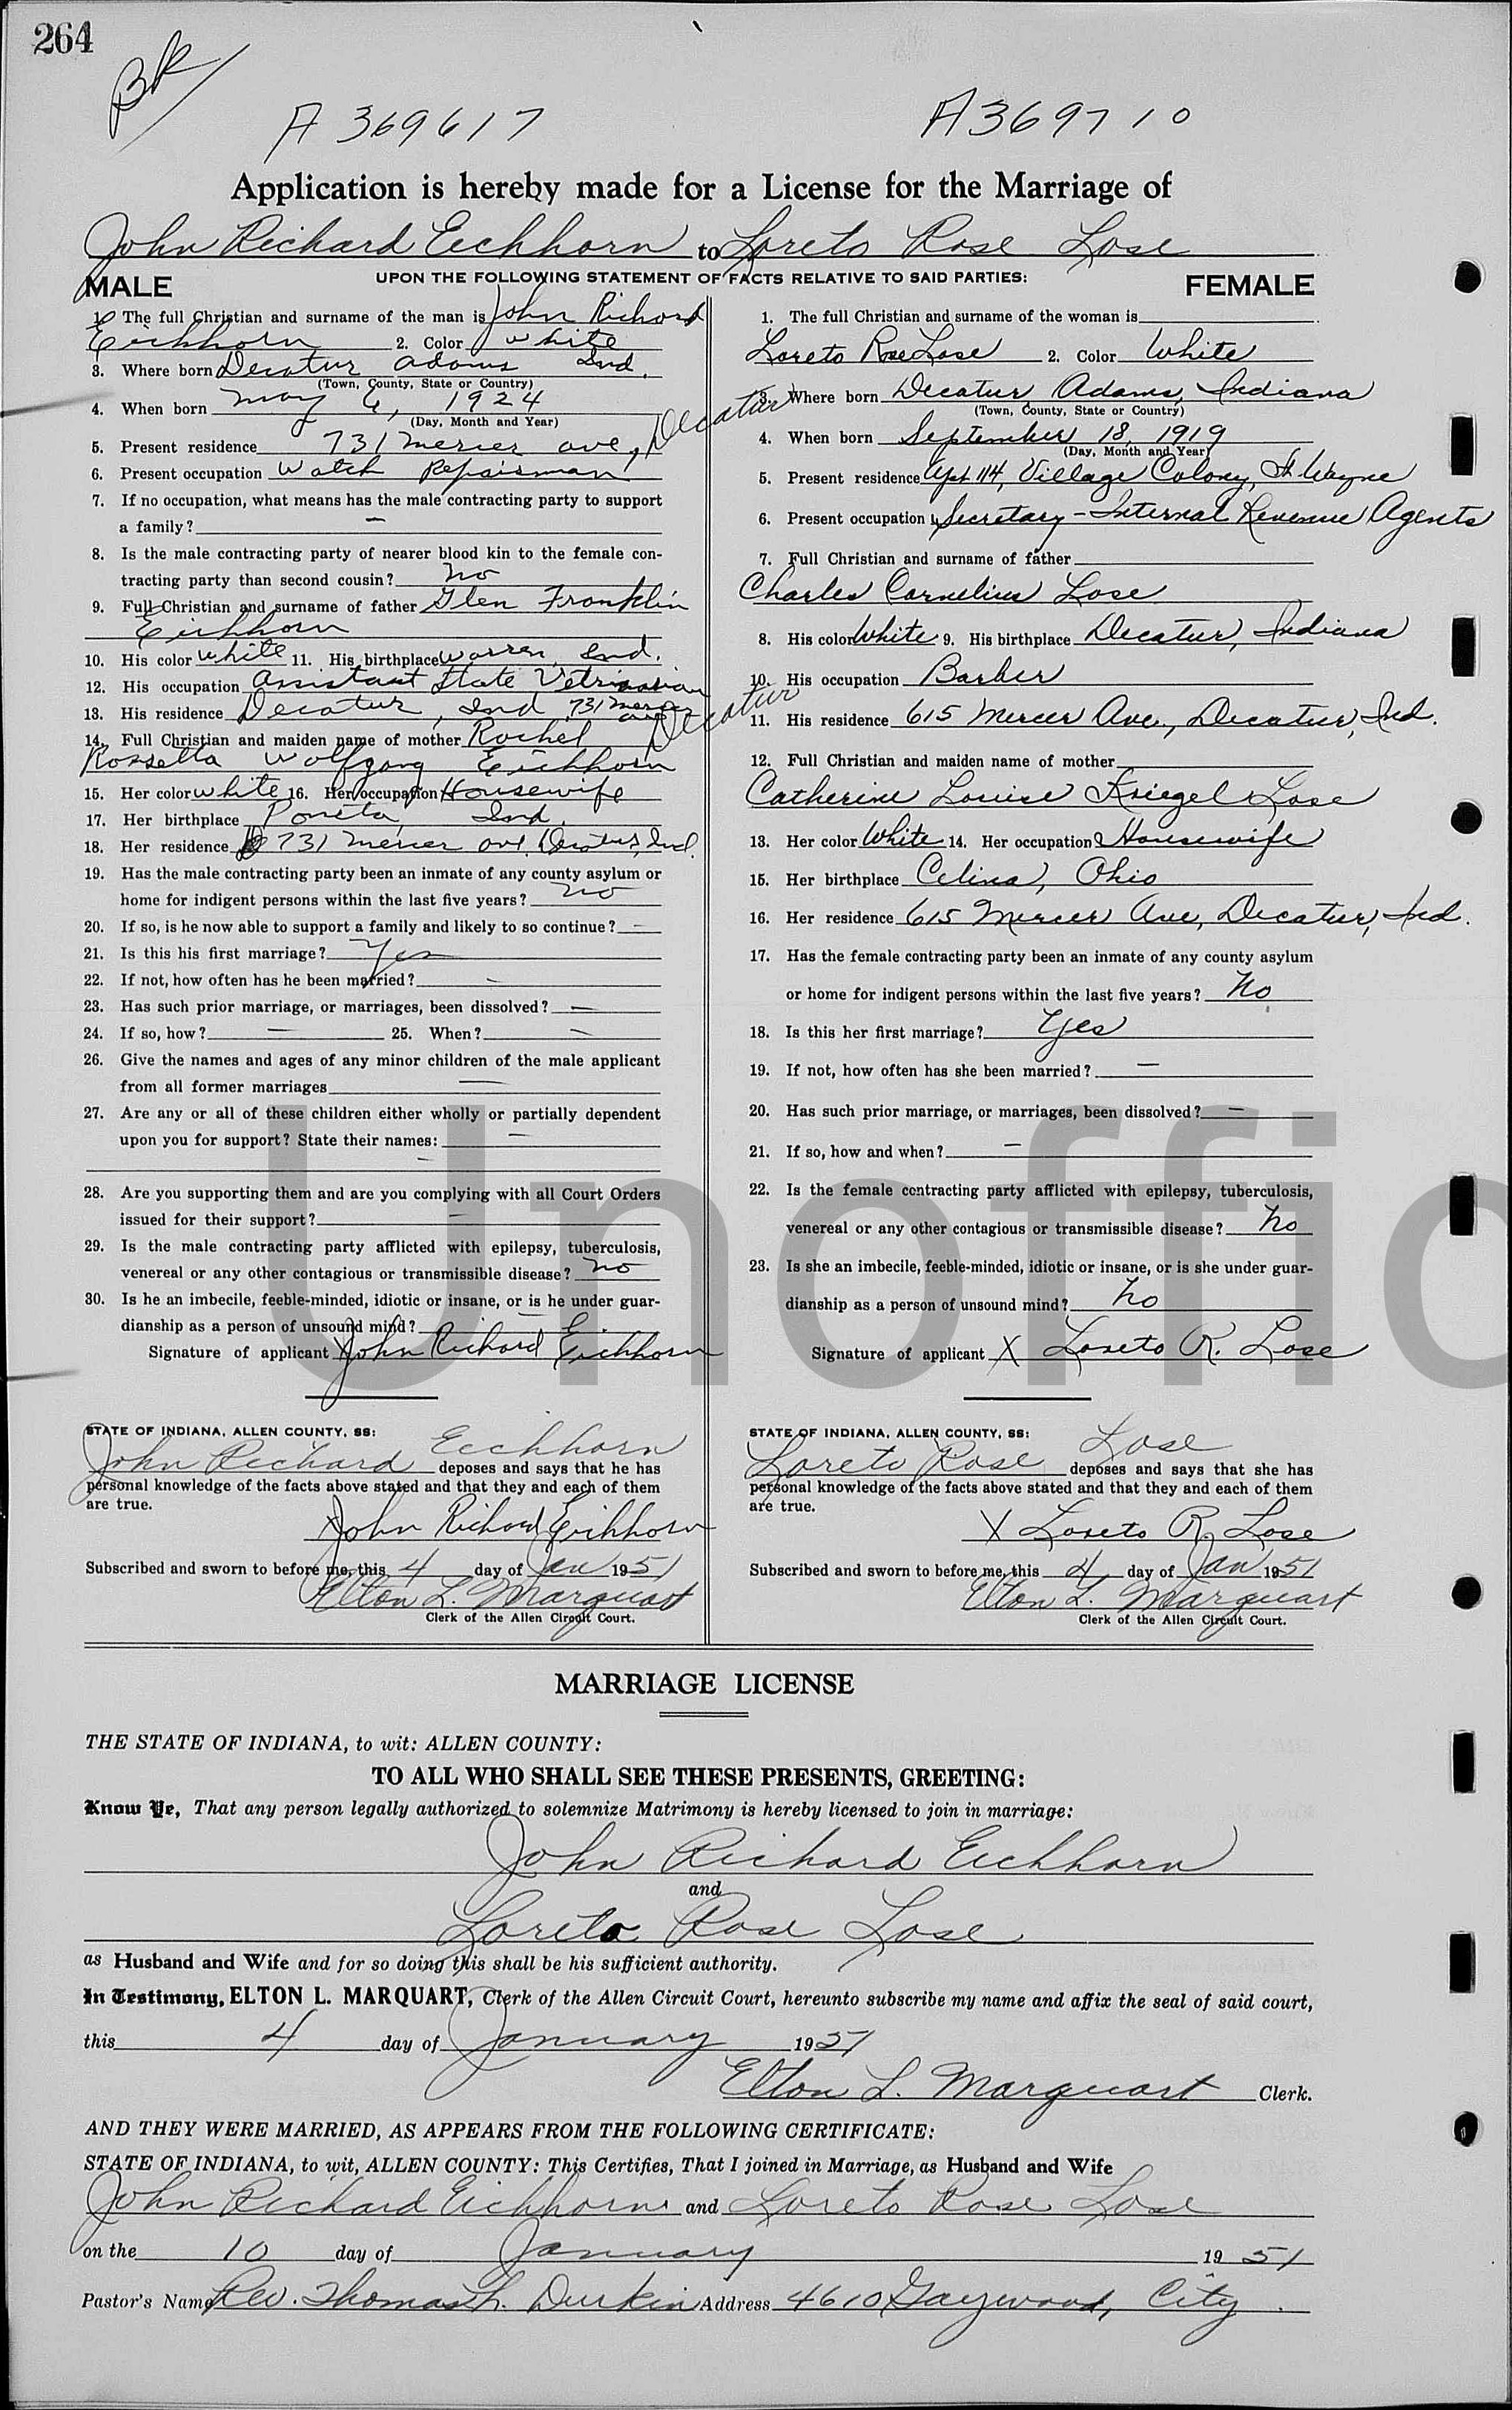 264
BR
A 369617 A 369710
Application is hereby made for a License for the Marriage of
John Richard Eichhorn to Loreto Rose Lose
UPON THE FOLLOWING STATEMENT OF FACTS RELATIVE TO SAID PARTIES:
MALE
1. The full Christian and surname of the man is John Richard
Eichhorn 2. Color White
3. Where born Decatur Adams Ind.
(Town, County, State or Country)
4. When born May 6, 1924
(Day, Month and Year)
5. Present residence 731 Mercer Ave, Decatur
6. Present occupation Watch Repairman
7. If no occupation, what means has the male contracting party to support
a family? -
8. Is the male contracting party of nearer blood kin to the female con-
tracting party than second cousin? no
9. Full Christian and surname of father Glen Franklin
Eichhorn
10. His color White 11. His birthplace Warren, Ind.
12. His occupation Assistant State Vetrinarian
13. His residence Decatur, Ind 731 Mercer Ave Decatur
14. Full Christian and maiden name of mother Rachel
Rossetta Wolfgang Eichhorn
15. Her color White 16. Her occupation Housewife
17. Her birthplace Poneto, Ind.
18. Her residence 731 Mercer Ave, Decatur, Ind.
19. Has the male contracting party been an inmate of any county asylum or
home for indigent persons within the last five years? no
20. If so, is he now able to support a family and likely to so continue? -
21. Is this his first marriage? Yes
22. If not, how often has he been married? -
23. Has such prior marriage, or marriages, been dissolved? -
24. If so, how? - 25. When? -
26. Give the names and ages of any minor children of the male applicant
from all former marriages -
27. Are any or all of these children either wholly or partially dependent
upon you for support? State their names: -
-
28. Are you supporting them and are you complying with all Court Orders
issued for their support? -
29. Is the male contracting party afflicted with epilepsy, tuberculosis,
venereal or any other contagious or transmissible disease? no
30. Is he an imbecile, feeble-minded, idiotic or insane, or is he under guar-
dianship as a person of unsound mind? -
Signature of applicant John Richard Eichhorn
STATE OF INDIANA, ALLEN COUNTY, SS:
John Richard Eichhorn deposes and says that he has
personal knowledge of the facts above stated and that they and each of them
are true.
X John Richard Eichhorn
Subscribed and sworn to before me, this 4 day of Jan 1951
Elton L. Marquart
Clerk of the Allen Circuit Court.
FEMALE
1. The full Christian and surname of the woman is
Loreto Rose Lose 2. Color White
3. Where born Decatur Adams, Indiana
(Town, County, State or Country)
4. When born September 18, 1919
(Day, Month and Year)
5. Present residence Apt 114, Village Colony, Ft Wayne
6. Present occupation Secretary - Internal Revenue Agents
7. Full Christian and surname of father
Charles Cornelius Lose
8. His color White 9. His birthplace Decatur, Indiana
10. His occupation Barber
11. His residence 615 Mercer Ave., Decatur, Ind.
12. Full Christian and maiden name of mother
Catherine Louise Kriegel Lose
13. Her color White 14. Her occupation Housewife
15. Her birthplace Celina, Ohio
16. Her residence 615 Mercer Ave, Decatur, Ind.
17. Has the female contracting party been an inmate of any county asylum
or home for indigent persons within the last five years? No
18. Is this her first marriage? Yes
19. If not, how often has she been married? -
20. Has such prior marriage, or marriages, been dissolved? -
21. If so, how and when? -
22. Is the female contracting party afflicted with epilepsy, tuberculosis,
venereal or any other contagious or transmissible disease? No
23. Is she an imbecile, feeble-minded, idiotic or insane, or is she under guar-
dianship as a person of unsound mind? No
Signature of applicant X Loreto R. Lose
STATE OF INDIANA, ALLEN COUNTY, SS:
Loreto Rose Lose deposes and says that she has
personal knowledge of the facts above stated and that they and each of them
are true.
X Loreto R. Lose
Subscribed and sworn to before me, this 4 day of Jan 1951
Elton L. Marquart
Clerk of the Allen Circuit Court.
Unoffic
MARRIAGE LICENSE
THE STATE OF INDIANA, to wit: ALLEN COUNTY:
TO ALL WHO SHALL SEE THESE PRESENTS, GREETING:
Know Ye, That any person legally authorized to solemnize Matrimony is hereby licensed to join in marriage:
John Richard Eichhorn
and
Loreto Rose Lose
as Husband and Wife and for so doing this shall be his sufficient authority.
In Testimony, ELTON L. MARQUART, Clerk of the Allen Circuit Court, hereunto subscribe my name and affix the seal of said court,
this 4 day of January 1951
Elton L. Marquart Clerk.
AND THEY WERE MARRIED, AS APPEARS FROM THE FOLLOWING CERTIFICATE:
STATE OF INDIANA, to wit, ALLEN COUNTY: This Certifies, That I joined in Marriage, as Husband and Wife
John Richard Eichhorn and Loreto Rose Lose
on the 10 day of January 1951
Pastor's Name Rev. Thomas L. Durkin Address 4610 Gaywood, City.